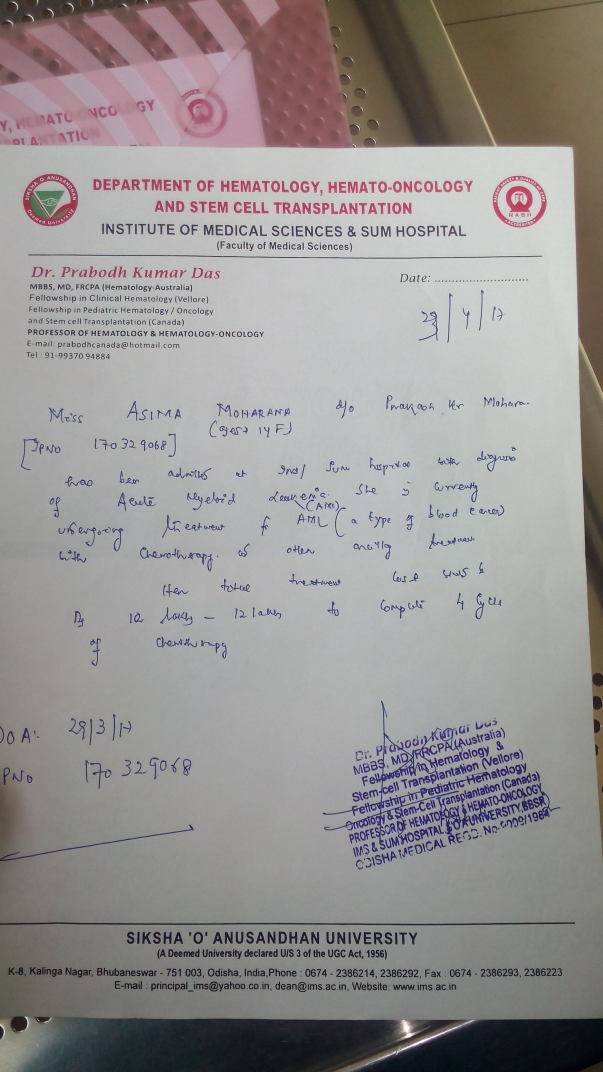 Y, HEMATO-ONCOLOGY
PLANTATION
SIKSHA 'O' ANUSANDHAN
Deemed University
DEPARTMENT OF HEMATOLOGY, HEMATO-ONCOLOGY
AND STEM CELL TRANSPLANTATION
INSTITUTE OF MEDICAL SCIENCES & SUM HOSPITAL
(Faculty of Medical Sciences)
NABH
Dr. Prabodh Kumar Das
MBBS, MD, FRCPA (Hematology-Australia)
Fellowship in Clinical Hematology (Vellore)
Fellowship in Pediatric Hematology / Oncology
and Stem cell Transplantation (Canada)
PROFESSOR OF HEMATOLOGY & HEMATOLOGY-ONCOLOGY
E-mail: prabodhcanada@hotmail.com
Tel : 91-99370 94884
Date: ............................
/4/17
Miss ASIMA MOHARANA D/o Prakash Kr Mohara.
[IPNO 170329068]
has been admitted at Sum hospital with diagnosis
of Acute Myeloid Leukemia. She is currently
(AML)
undergoing treatment f AML (a type of blood cancer)
with Chemotherapy. treatment
Her total treatment cost
Rs 10 lakhs - 12 lakhs to complete 4 Cycle
of Chemotherapy
DOA: 29/3/17
PNO 170329068
Dr. Prabodh Kumar Das
MBBS, MD, FRCPA (Australia)
Fellowship in Hematology &
Stem-cell Transplantation (Vellore)
Fellowship in Pediatric Hematology
Oncology & Stem-Cell Transplantation (Canada)
PROFESSOR OF HEMATOLOGY & HEMATO-ONCOLOGY
IMS & SUM HOSPITAL, SOA UNIVERSITY, BBSR
ODISHA MEDICAL REGD. No.
SIKSHA 'O' ANUSANDHAN UNIVERSITY
(A Deemed University declared U/S 3 of the UGC Act, 1956)
K-8, Kalinga Nagar, Bhubaneswar - 751 003, Odisha, India, Phone : 0674 - 2386214, 2386292, Fax : 0674 - 2386293, 2386223
E-mail : principal_ims@yahoo.co.in, dean@ims.ac.in, Website: www.ims.ac.in